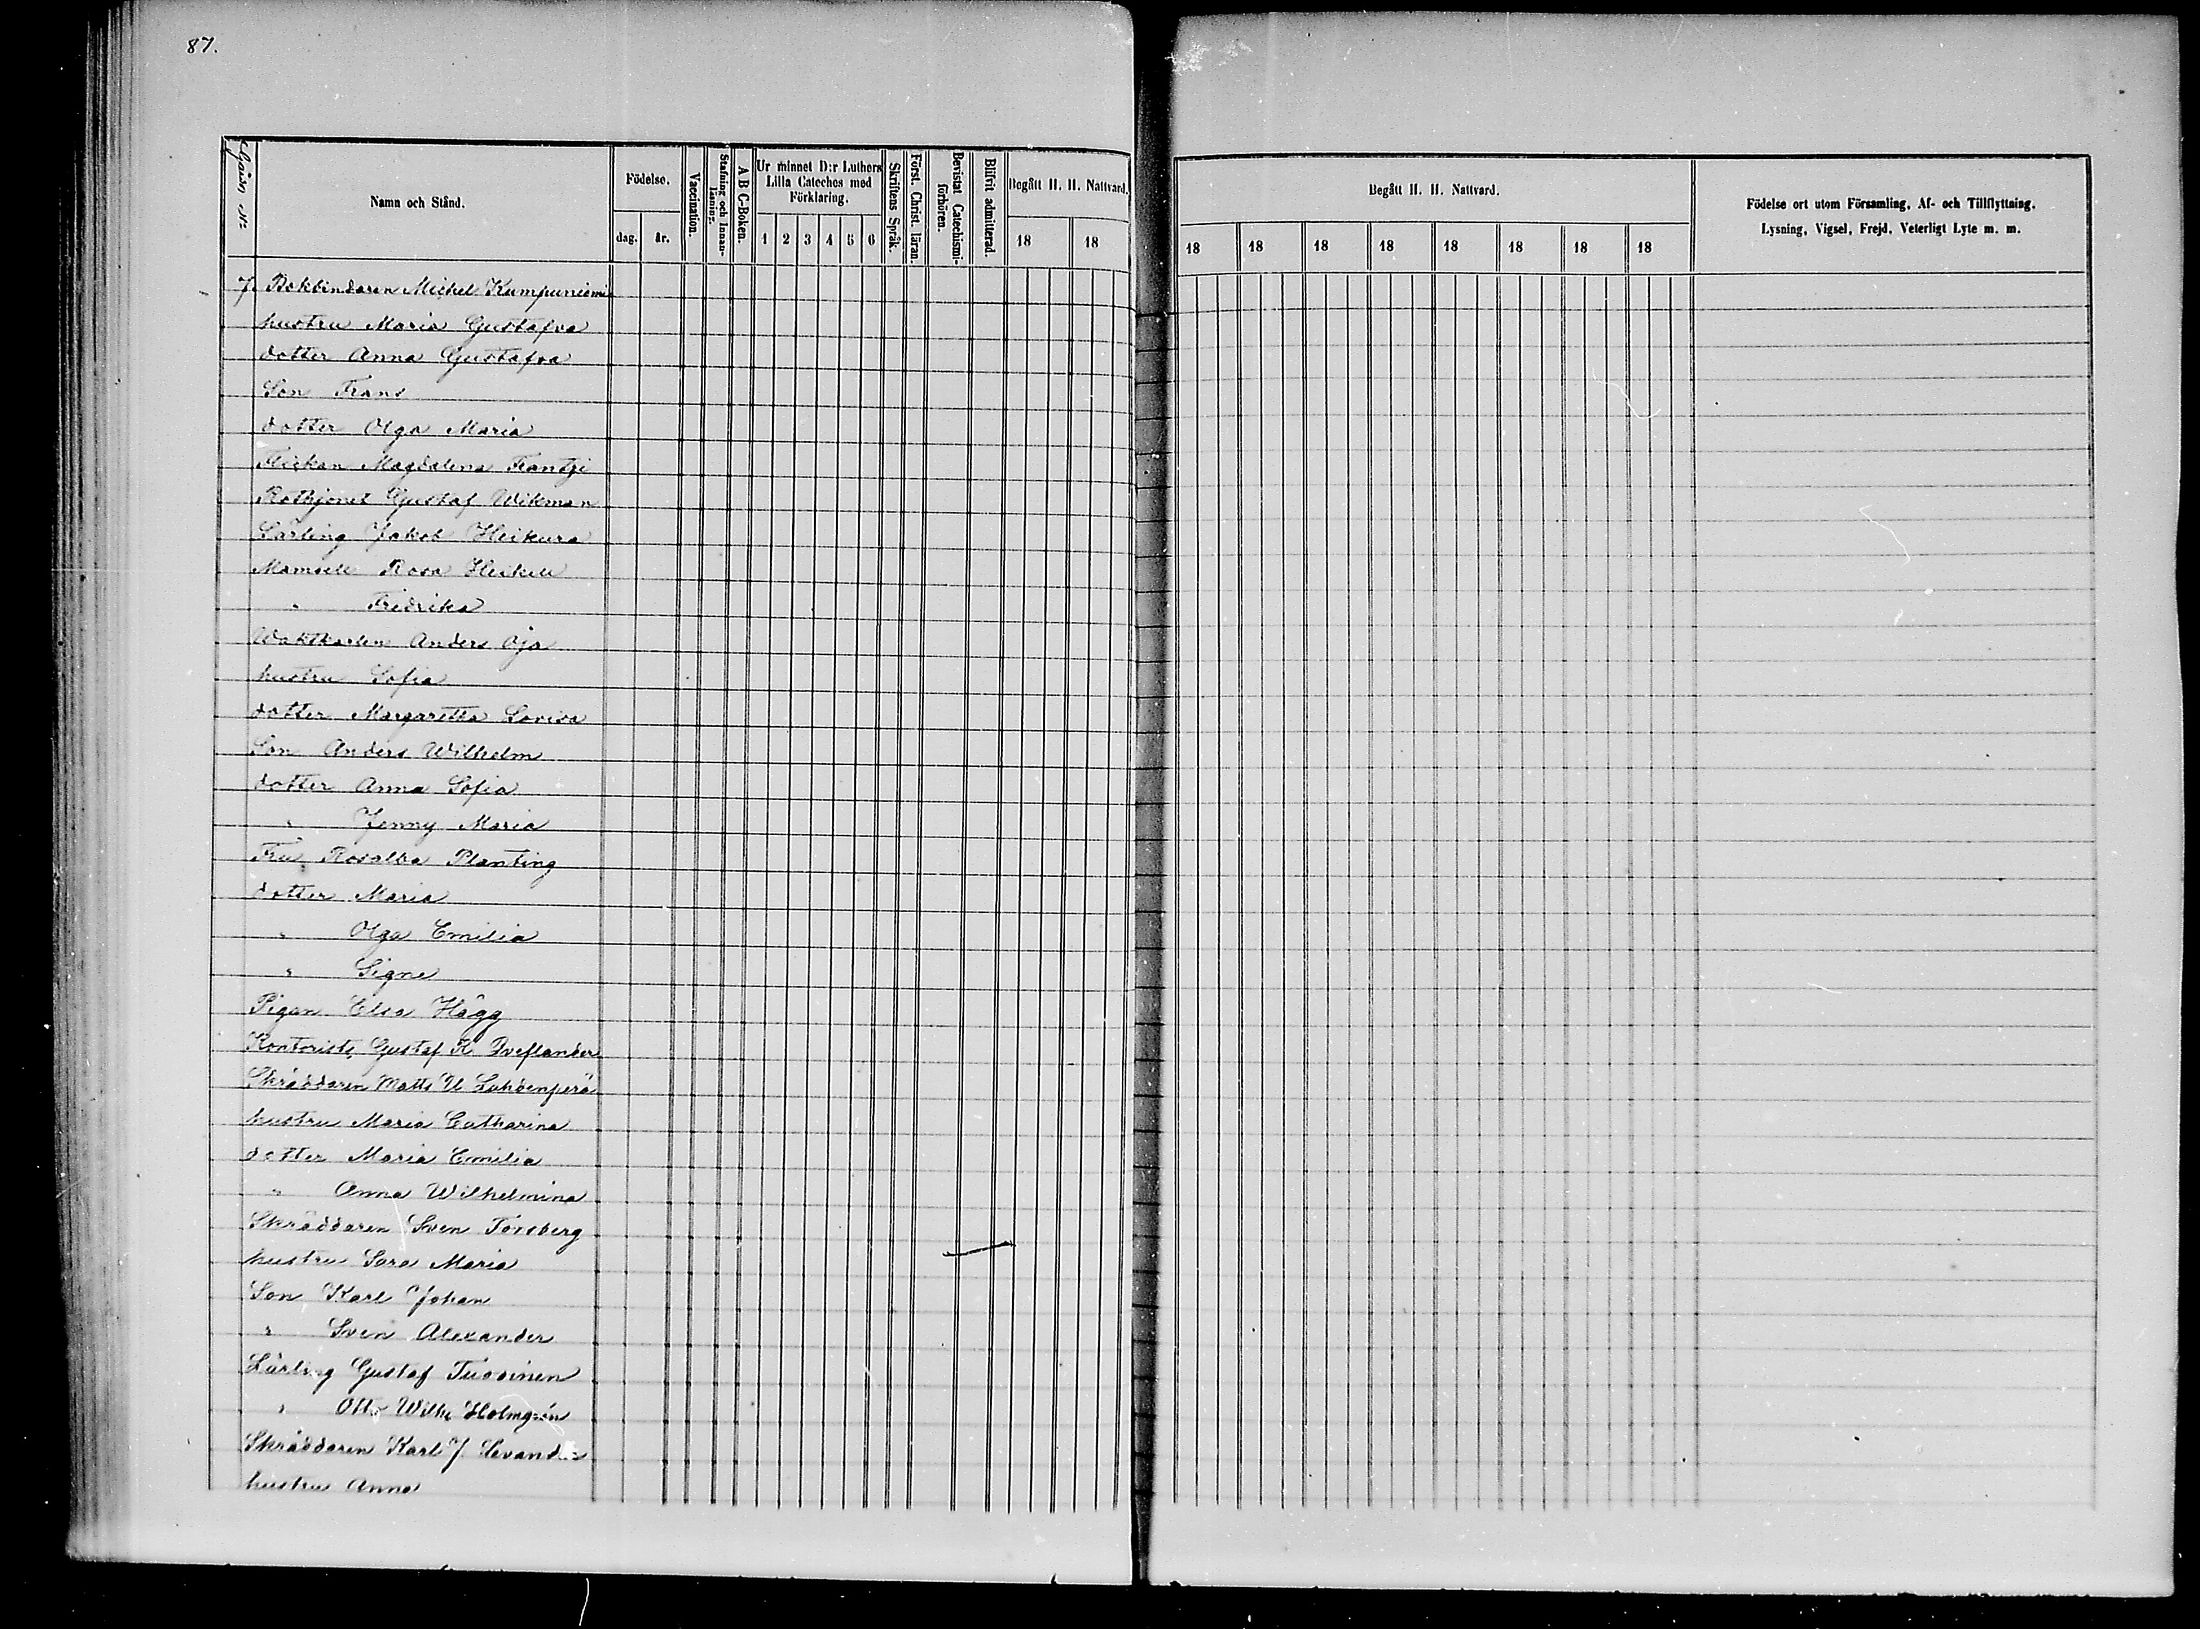 87.
Gård N:
Namn och Stånd.
Födelse.
dag.
år.
Vaccination.
Stafning och Innan-
läsning.
A B C-Boken.
Ur minnet D:r Luthers
Lilla Cateches med
Förklaring.
1 2 3 4 5 6
Skriftens Språk.
Först. Christ. läran.
Bevistat Catechismi-
förhören.
Blifvit admitterad.
Begått H. H. Nattvard.
18 18
Begått H. H. Nattvard.
18 18 18 18 18 18 18 18
Födelse ort utom Församling, Af- och Tillflyttning,
Lysning, Vigsel, Frejd, Veterligt Lyte m. m.
7. Bokbindaren Michel Kumpuniemi
hustru Maria Gustafva
dotter Anna Gustafva
Son Frans
dotter Olga Maria
Flickan Magdalena Frantzi
Gustaf Wikman
Lärling Jakob Heikura
Mamsell Rosa Heikell
" Fridrika
Waktkarlen Anders Oja
hustru Sofia
dotter Margaretha Lovisa
Son Anders Wilhelm
dotter Anna Sofia
" Jenny Maria
Fru Rosalba Planting
dotter Maria
" Olga Emilia
" Signe
Pigan Elsa Hägg
Kontorist Gustaf K.
Skräddaren Matts U Lahdenperä
hustru Maria Catharina
dotter Maria Emilia
" Anna Wilhelmina
Skräddaren Sven Torsberg
hustru Sara Maria
Son Karl Johan
" Sven Alexander
Lärling Gustaf Tuovinen
" Otto Wilh Holmgrén
Skräddaren Karl J.
hustru Anna